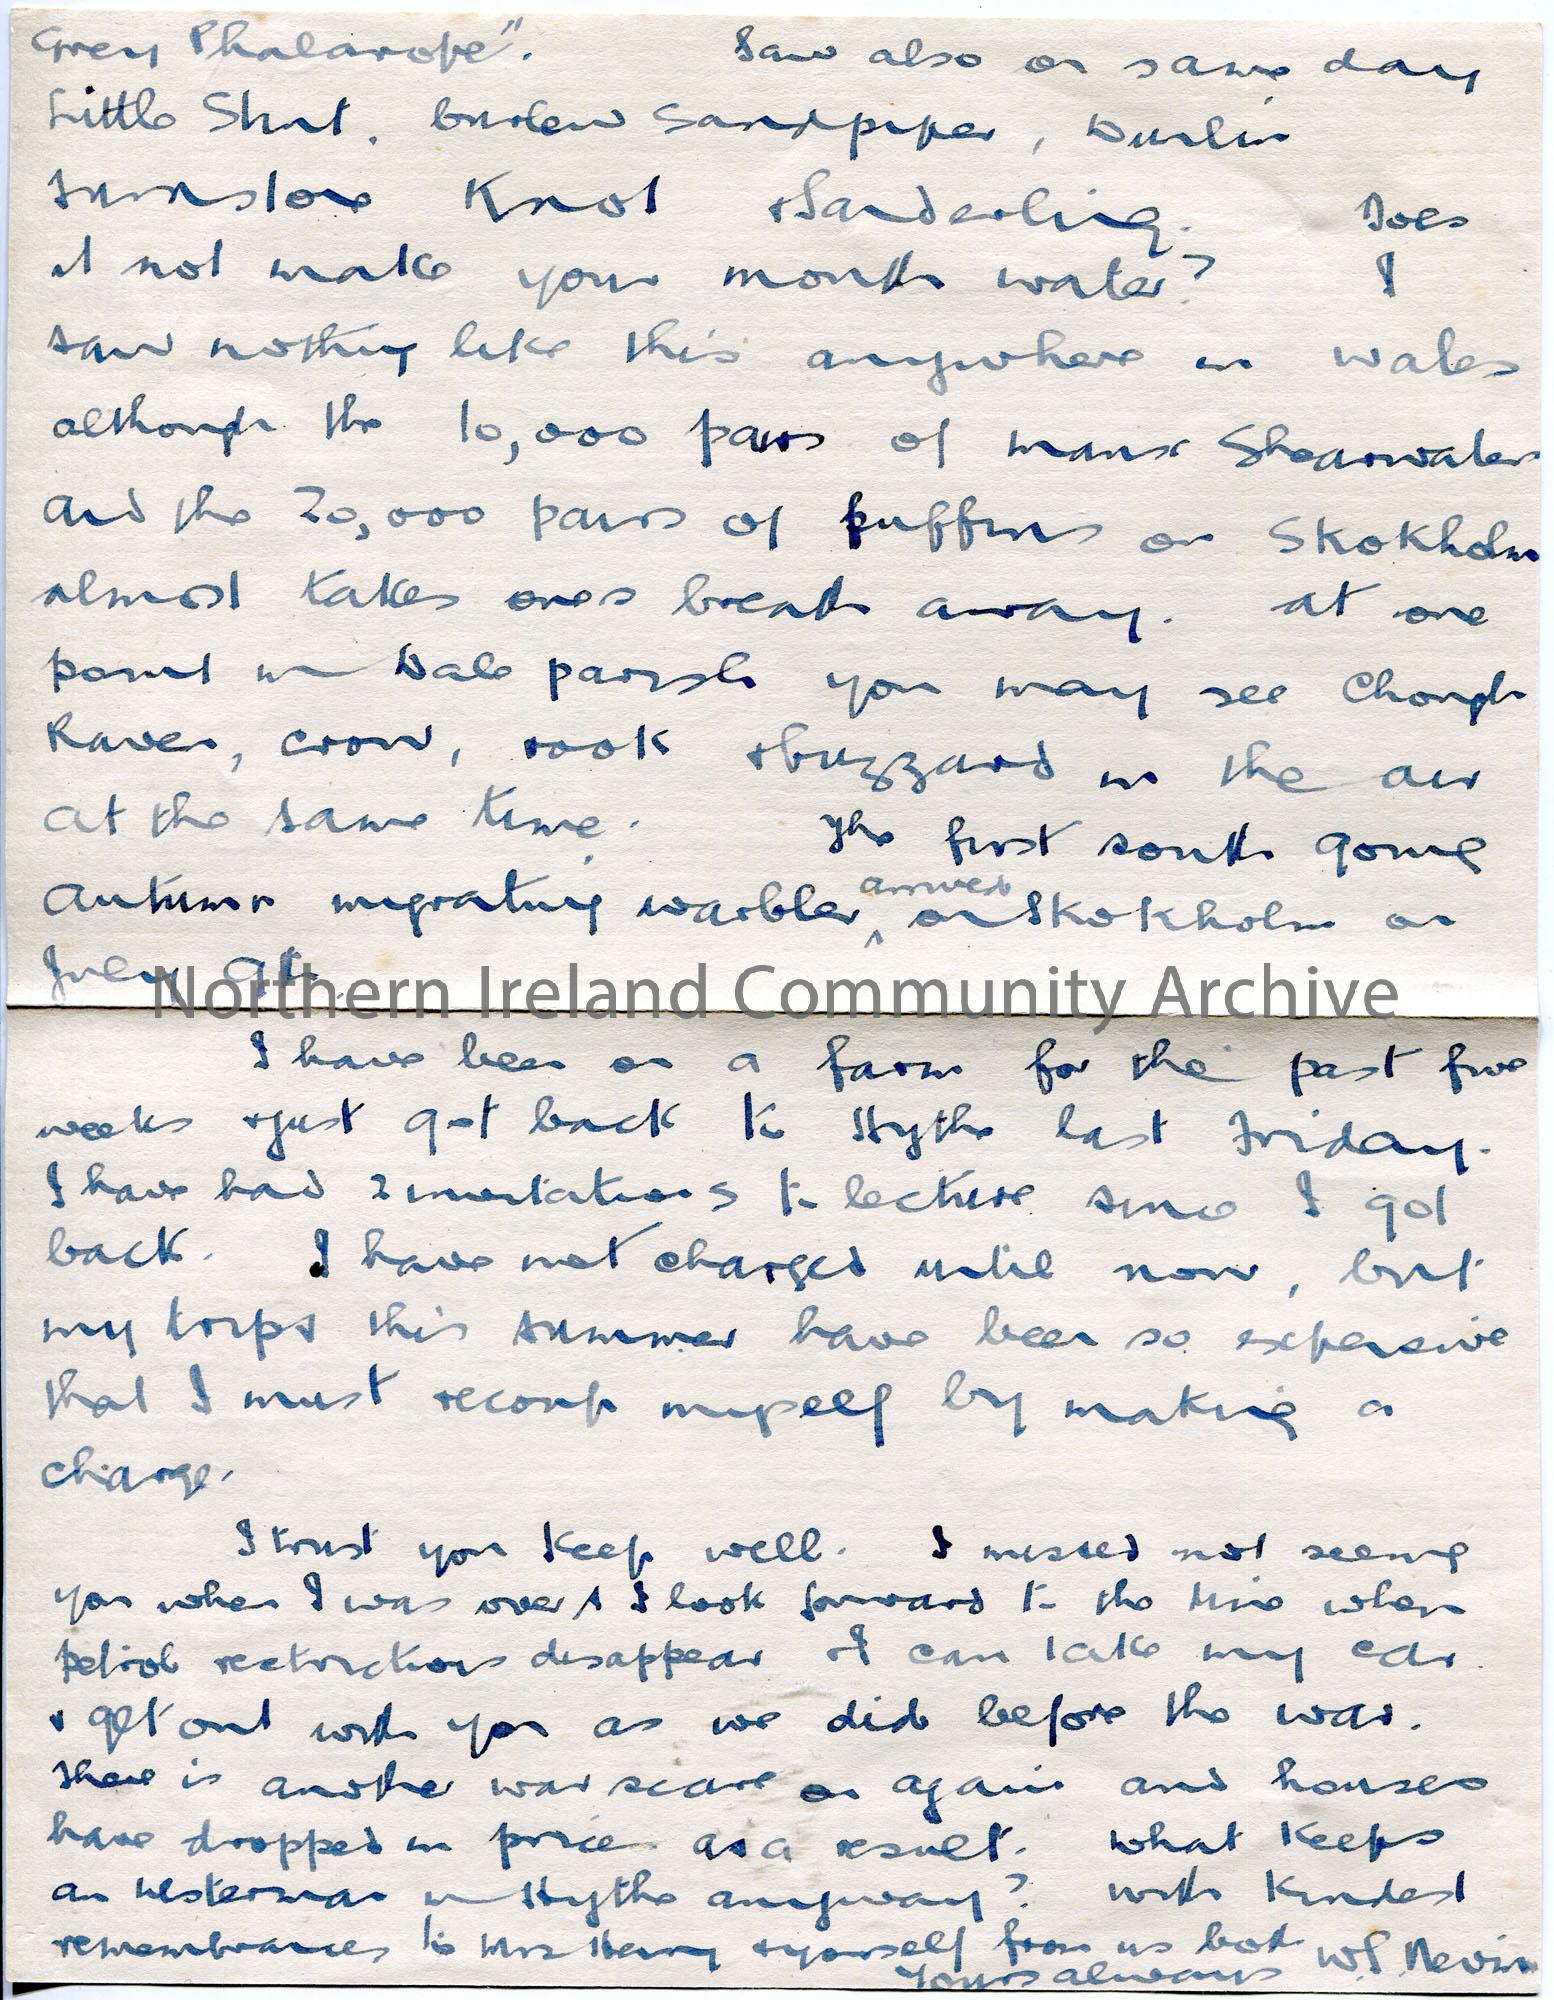 Grey Phalarope". Saw also on same day
Little Stint, Curlew Sandpiper, Dunlin
Turnstone Knot & Sanderling. Does
it not make your mouth water? I
saw nothing like this anywhere in Wales
although the 10,000 pairs of manx Shearwaters
and the 20,000 pairs of puffins on Skokholm
almost takes ones breath away. At one
point in Dale parish you may see Chough
Raven, crow, rook & buzzard in the air
at the same time. The first south going
Autumn migrating warbler arrived on Skokholm on
July 9th.
Northern Ireland Community Archive
I have been on a farm for the past five
weeks & just got back to Hythe last Friday.
I have had 2 invitations to lecture since I got
back. I have not charged until now, but
my trips this summer have been so expensive
that I must recoup myself by making a
charge.
I trust you keep well. I missed not seeing
you when I was over & I look forward to the time when
petrol restrictions disappear & I can take my car
& get out with you as we did before the war.
There is another war scare on again and houses
have dropped in price as a result. What keeps
an Ulsterman in Hythe anyway? With kindest
remembrances to Mrs Henry & yourself from us both
Yours always W.S. Nevin